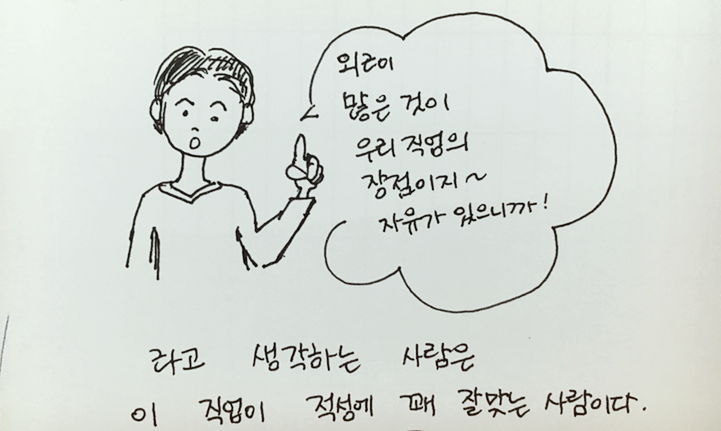 외근이
많은 것이
우리 직업의
장점이지~
자유가 있으니까!
라고 생각하는 사람은
이 직업이 적성에 꽤 잘맞는 사람이다.